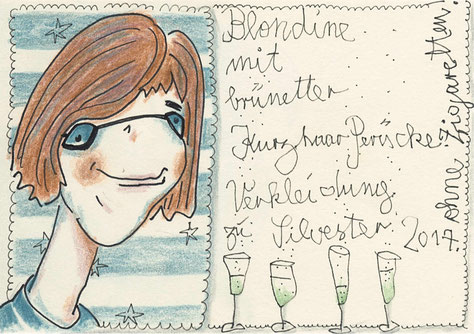 Blondine
mit
brünetter
Kurzhaar Perücke.
Verkleidung
zu Silvester
2017. ohne Zigaretten!